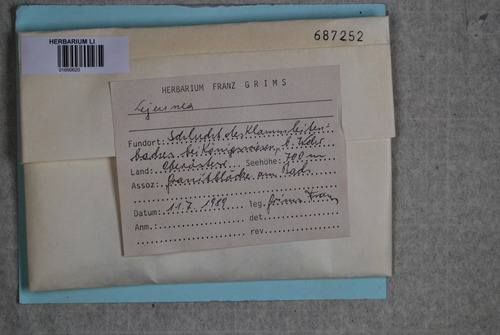 HERBARIUM LI
01690020
687252
HERBARIUM FRANZ GRIMS
Lejeunea
Fundort: Schlucht des Klammleiten-
baches bei Königswiesen,
Land: Oberösterr. Seehöhe: 700 m
Assoz: Granitblöcke am Bach
Datum: 11.7.1989 leg. Grims Franz
Anm.: det.
rev.